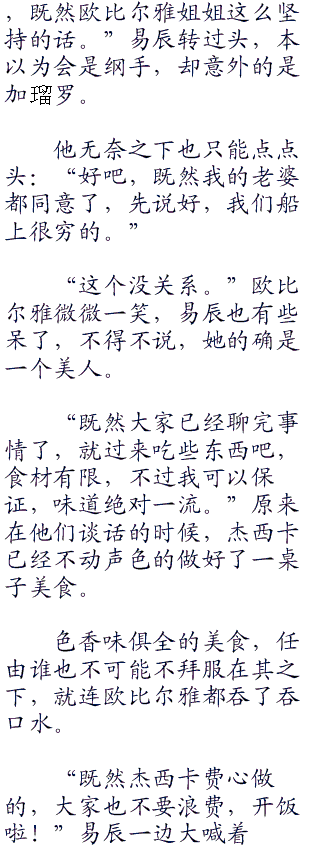 ，既然欧比尔雅姐姐这么坚
持的话。”易辰转过头，本
以为会是纲手，却意外的是
加瑠罗。
他无奈之下也只能点点
头：“好吧，既然我的老婆
都同意了，先说好，我们船
上很穷的。”
“这个没关系。”欧比
尔雅微微一笑，易辰也有些
呆了，不得不说，她的确是
一个美人。
“既然大家已经聊完事
情了，就过来吃些东西吧，
食材有限，不过我可以保
证，味道绝对一流。”原来
在他们谈话的时候，杰西卡
已经不动声色的做好了一桌
子美食。
色香味俱全的美食，任
由谁也不可能不拜服在其之
下，就连欧比尔雅都吞了吞
口水。
“既然杰西卡费心做
的，大家也不要浪费，开饭
啦！”易辰一边大喊着